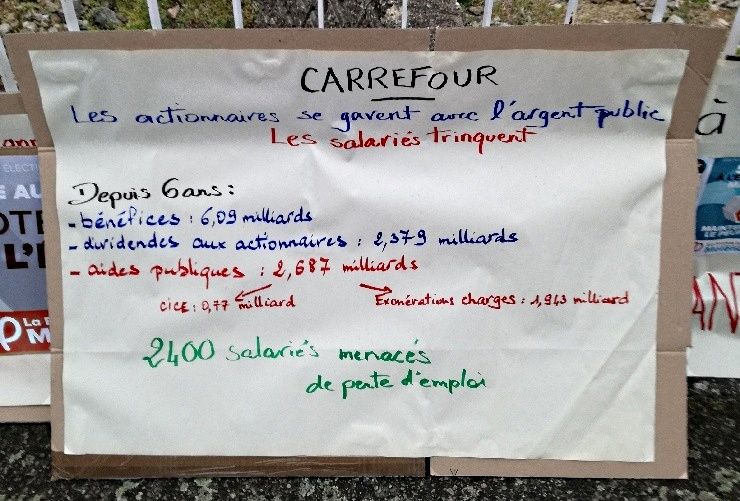 CARREFOUR
Les actionnaires se gavent avec l'argent public
Les salariés trinquent
Depuis 6 ans :
- bénéfices : 6,09 milliards
- dividendes aux actionnaires : 2,379 milliards
- aides publiques : 2,687 milliards
CICE : 0,77 milliard
Exonérations charges : 1,943 milliard
2400 salariés menacés
de perte d'emploi
à